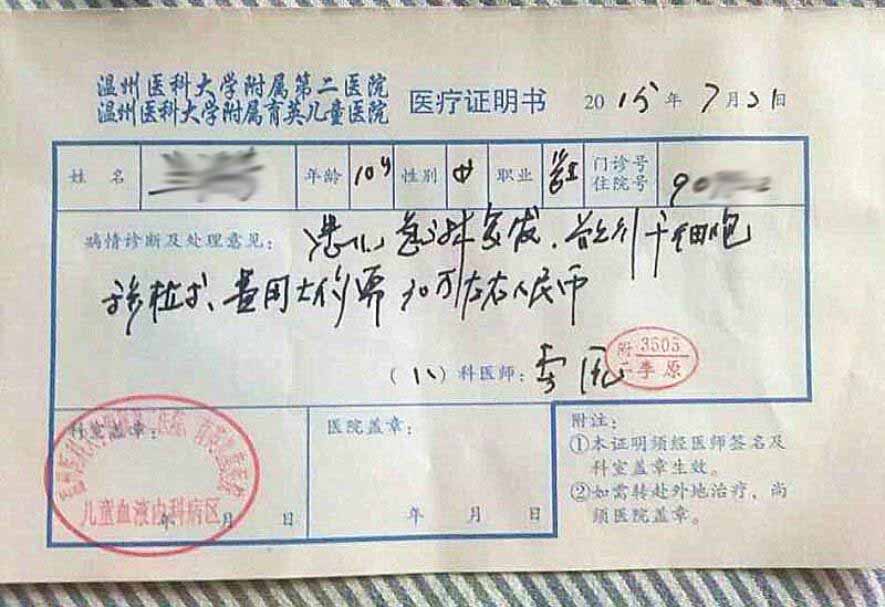 温州医科大学附属第二医院
温州医科大学附属育英儿童医院
医疗证明书 2015年7月31日
姓名 年龄 10岁 性别 女 职业 门诊号 住院号
病情诊断及处理意见: 患儿 急淋复发, 干细胞
移植术, 费用大约需 30万左右人民币
(八)科医师: 李原
附二 3505 李原
科室盖章: 医院盖章: 附注:
①本证明须经医师签名及
科室盖章生效。
②如需转赴外地治疗,尚
须医院盖章。
儿童血液内科病区
年 月 日 年 月 日